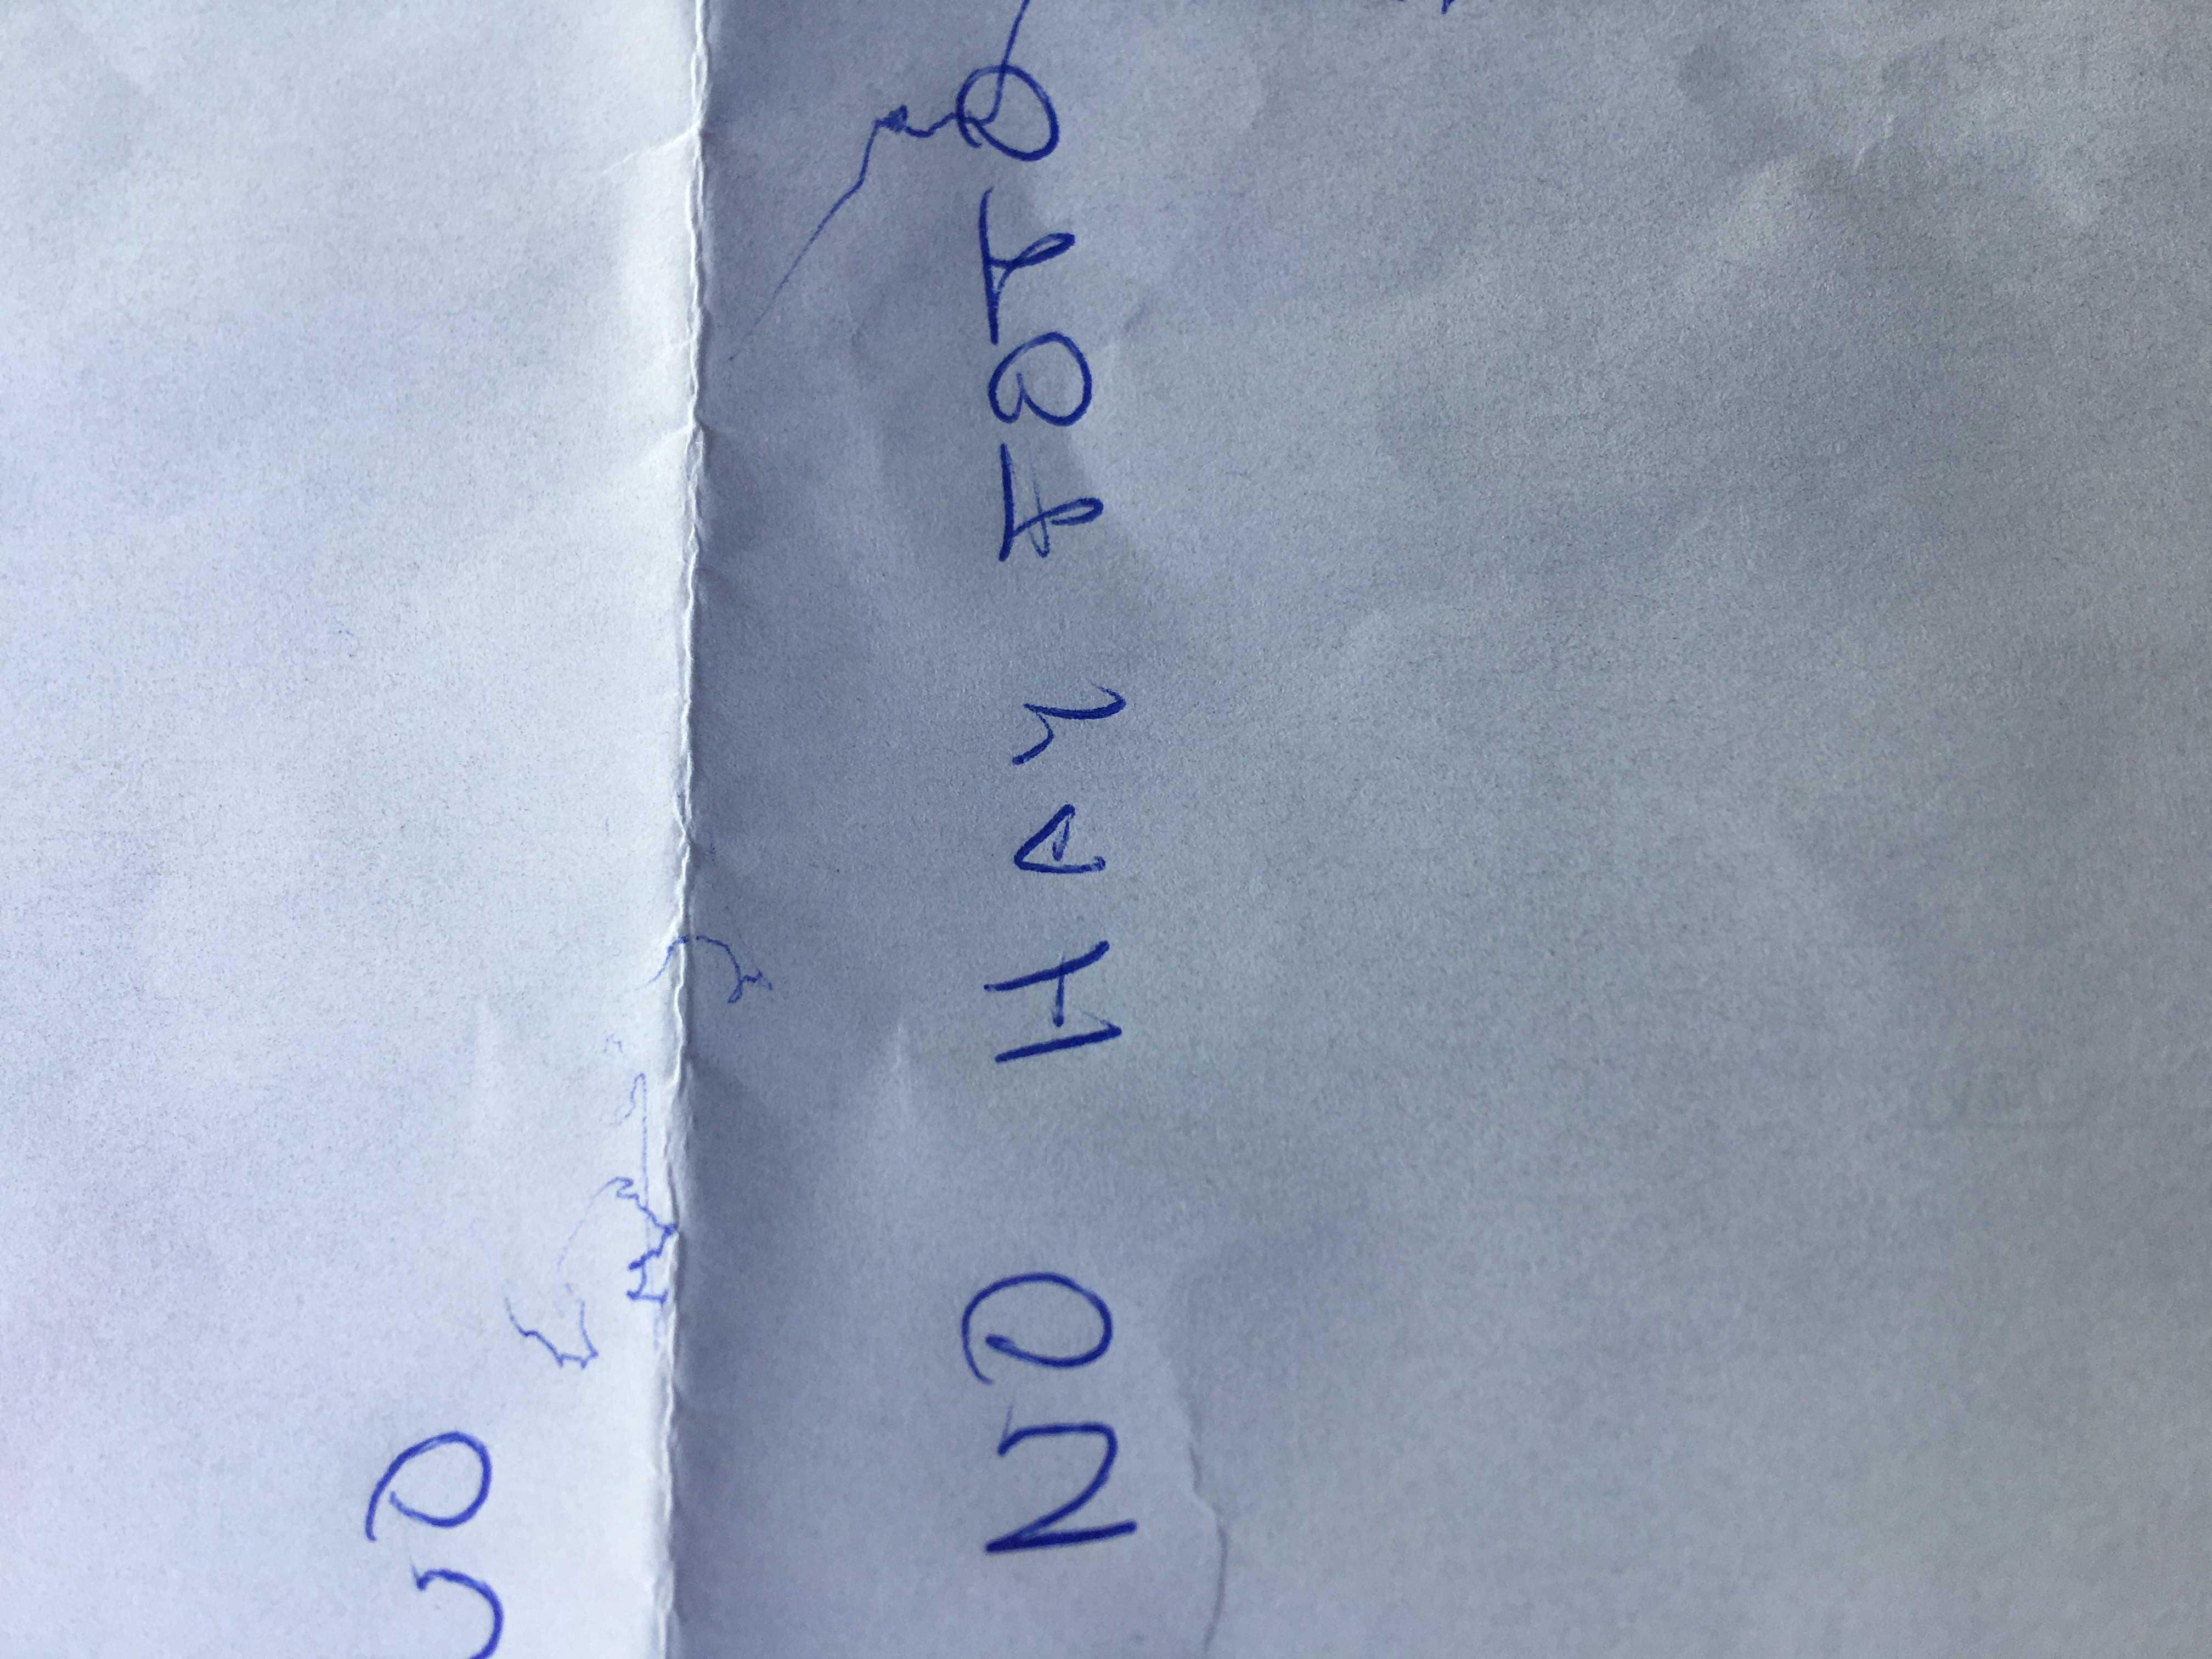 NO HAY FOTO